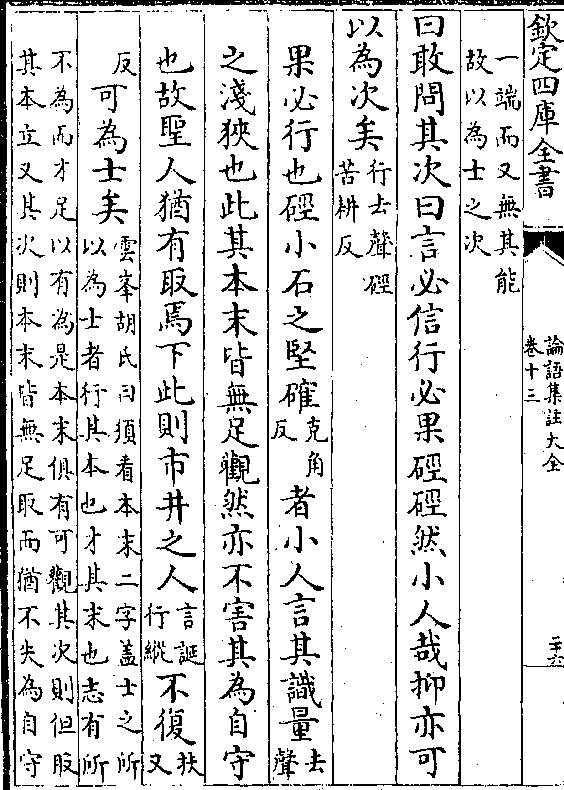 欽定四庫全書
論語集註大全
卷十三
二十六
一端而又無其能
故以為士之次
曰敢問其次曰言必信行必果硜硜然小人哉抑亦可
以為次矣
行去聲硜
苦耕反
果必行也硜小石之堅確
克角
反
者小人言其識量
去
聲
之淺狹也此其本末皆無足觀然亦不害其為自守
也故聖人猶有取焉下此則市井之人
言誕
行縱
不復
扶
又
反
可為士矣
雲峯胡氏曰須看本末二字蓋士之所
以為士者行其本也才其末也志有所
不為而才足以有為是本末俱有可觀其次則但取
其本立又其次則本末皆無足取而猶不失為自守